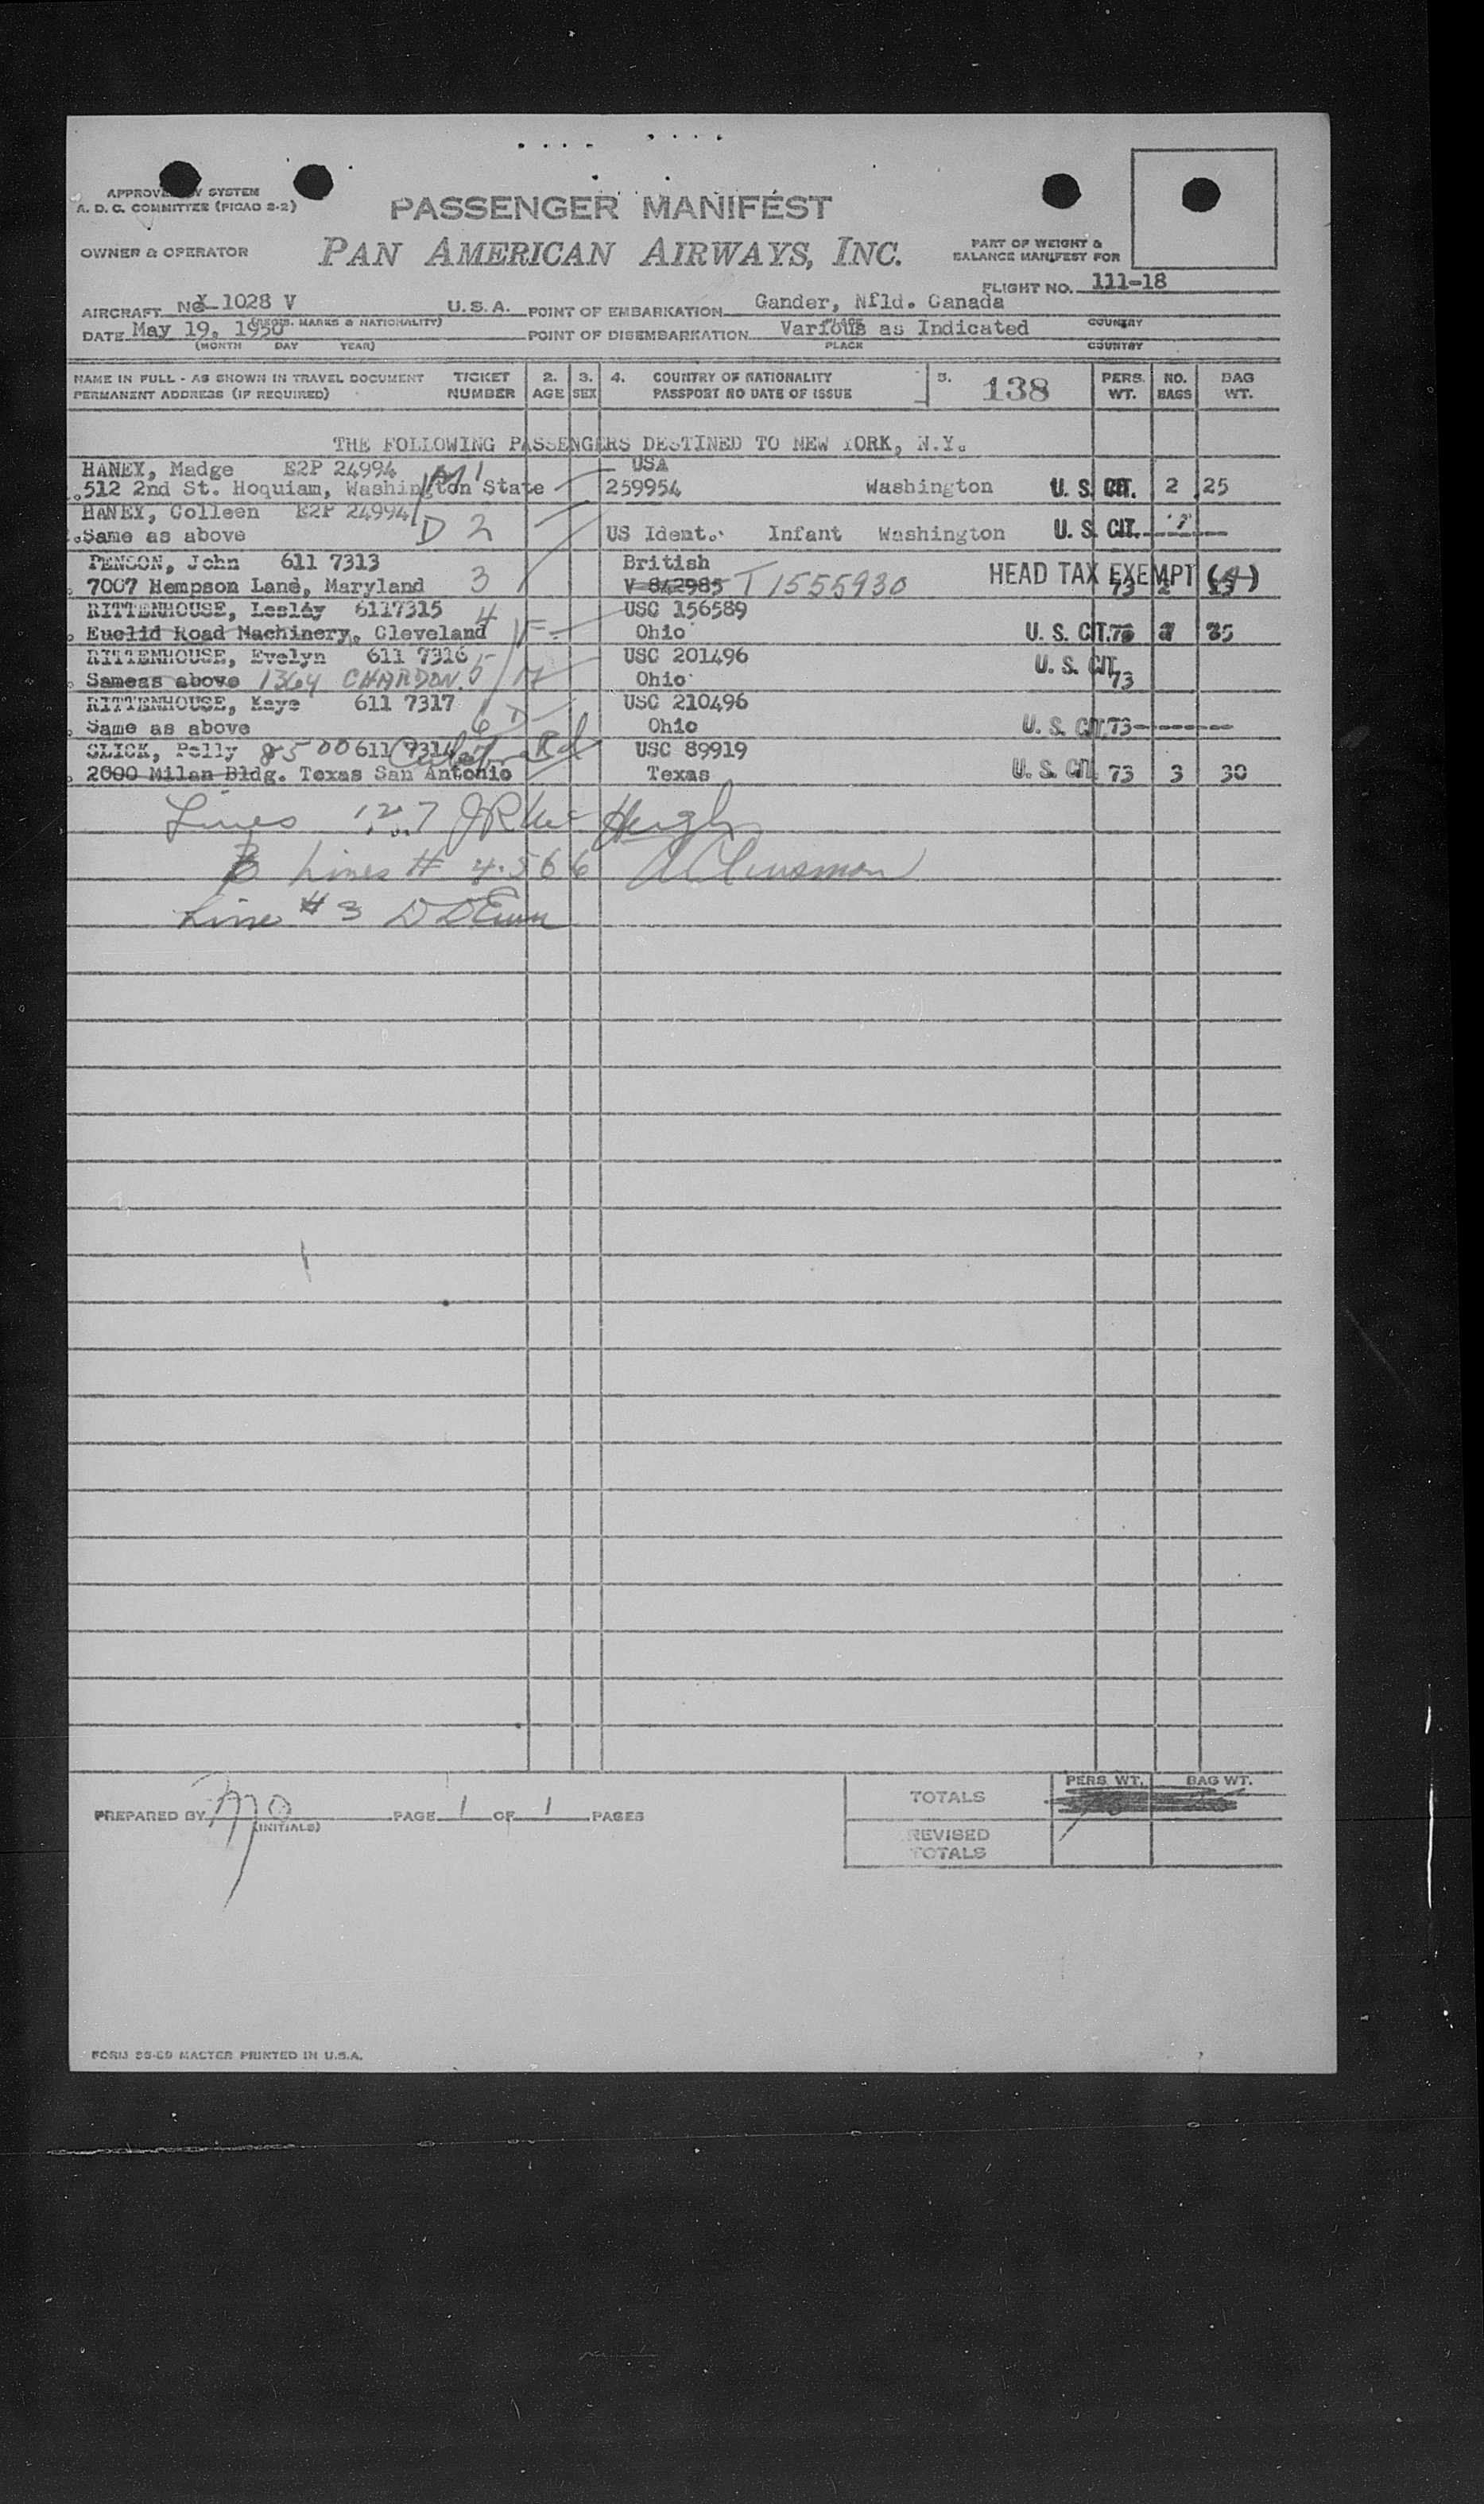 APPROVED BY SYSTEM
A. D. C. COMMITTEE (PICAO 2-2)
PASSENGER MANIFEST
OWNER & OPERATOR
PAN AMERICAN AIRWAYS, INC.
PART OF WEIGHT &
BALANCE MANIFEST FOR
FLIGHT NO. 111-18
AIRCRAFT NC X 1028 V U.S.A. POINT OF EMBARKATION Gander, Nfld. Canada
(REGIS. MARKS & NATIONALITY) PLACE COUNTRY
DATE May 19, 1950 POINT OF DISEMBARKATION Various as Indicated
(MONTH DAY YEAR) PLACE COUNTRY
NAME IN FULL - AS SHOWN IN TRAVEL DOCUMENT TICKET 2. 3. 4. COUNTRY OF NATIONALITY 5. 138 PERS. NO. BAG
PERMANENT ADDRESS (IF REQUIRED) NUMBER AGE SEX PASSPORT NO DATE OF ISSUE WT. BAGS WT.
THE FOLLOWING PASSENGERS DESTINED TO NEW YORK, N.Y.
HANEY, Madge E2P 24994 M 1 USA
512 2nd St. Hoquiam, Washington State 259954 Washington U. S. CIT. 2 25
HANEY, Colleen E2P 24994
Same as above D 2 US Ident. Infant Washington U. S. CIT.
PENSON, John 611 7313 British
7007 Hempson Lane, Maryland 3 V 842985 T 1555930 HEAD TAX EXEMPT 73
RITTENHOUSE, Lesley 6117315 4 USC 156589
Euclid Road Machinery, Cleveland F Ohio U. S. CIT.
RITTENHOUSE, Evelyn 611 7316 5 USC 201496
Sameas above 1364 CHARDON. M Ohio U. S. CIT. 73
RITTENHOUSE, Kaye 611 7317 USC 210496
Same as above 6 D Ohio U. S. CIT. 73
GLICK, Polly 8500 611 7314 Rd USC 89919
2000 Milan Bldg. Texas San Antonio Texas U. S. CIT. 73 3 30
Lines 1.2.7
Lines # 4.5 & 6
Line # 3
PREPARED BY (INITIALS) PAGE 1 OF 1 PAGES
TOTALS PERS. WT. BAG WT.
REVISED
TOTALS
FORM 95-ED MASTER PRINTED IN U.S.A.